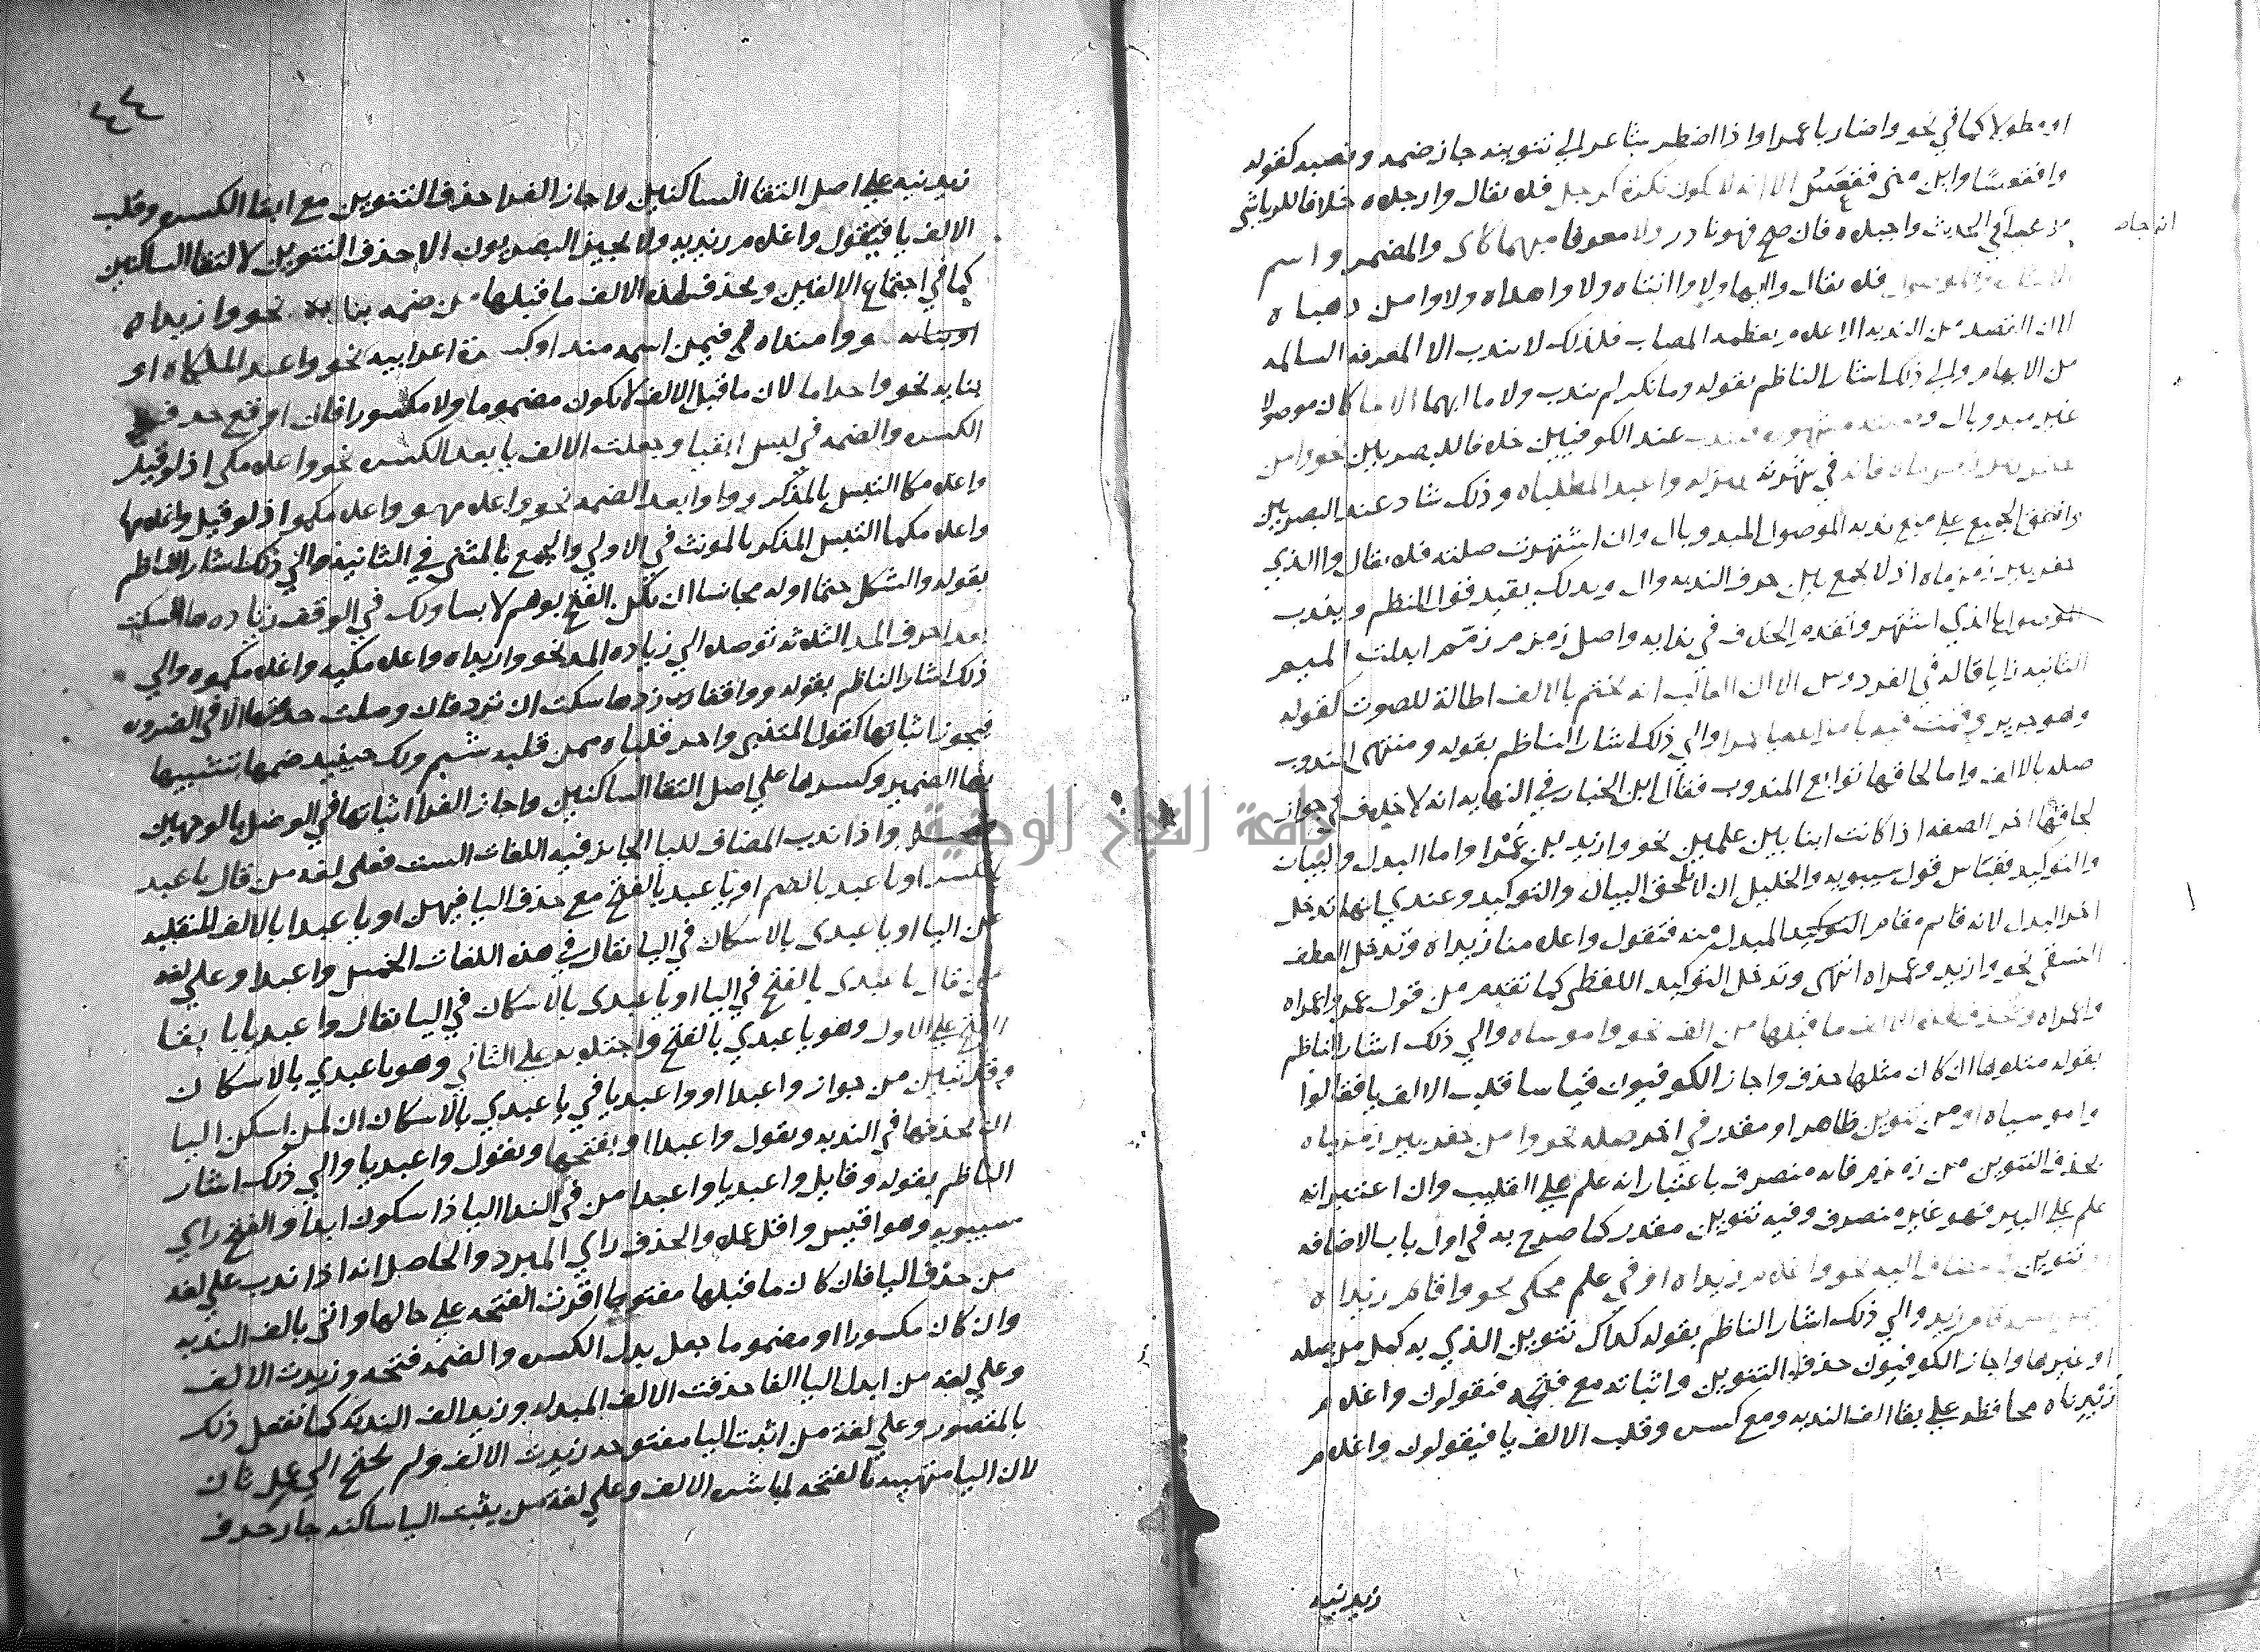 او مطولا كما في نحو واضاربا عمرا واذا اضطر شاعر الي تنوينه جاز ضمه ونصبه كقوله
وافقعسا واين مني فقعس الا انه لا يكون نكرة كرجل فلا يقال وارجلاه خلافا للرياشي
في الحديث واجبلاه فان صح فهو نادر ولا معرفا مبهما كاي والمضمر واسم
انه جاء
فلا يقال وا ايها ولا وا انتاه ولا واهذاه ولا وامن ذهباه
لان القصد من الندبة الاعلام بعظمة المصاب فلذلك لا يندب الا المعرفة السالمة
من الابهام والي ذلك اشار الناظم بقوله وما نكر لم يندب ولا ما ابهما الا ما كان موصولا
غير مبدو بال عند الكوفيين خلافا للبصريين نحو وامن
فانه في شهرته بمنزلة واعبد المطلباه وذلك شاذ عند البصريين
واتفق الجميع علي منع ندبة الموصول المبدو بال وان اشتهرت صلته فلا يقال واالذي
حفر بير زمزماه اذ لا يجمع بين حرف الندبة وال ويدلك بقيد قول النظم ويندب
الموصول بالذي اشتهر وتقدم الخلاف في ندابه واصل زمزم زمم ابدلت الميم
الثانية زايا قاله في الفردوس الا ان الغالب ان يختم بالالف اطالة للصوت كقوله
وهو جرير وقمت فيه بامر الله يا عمرا والي ذلك اشار الناظم بقوله ومنتهي المندوب
صله بالالف واما لحاقها توابع المندوب فقال ابن الخباز في النهاية انه لا خلاف في جواز
لحاقها اخر الصفة اذا كانت ابنا بين علمين نحو وازيد بن عمرا واما البدل والبيان
والتوكيد فقياس قول سيبويه والخليل ان لا تلحق البيان والتوكيد وعندي انها تدخل
اخر البدل لانه قام مقام المبدل منه فتقول واغلامنا زيداه وتدخل العطف
النسقي نحو وازيد وعمراه انتهي وتدخل التوكيد اللفظي كما تقدم من قول عمر واعمراه
واعمراه ويحذف لهذه الالف ما قبلها من الف نحو واموساه والي ذلك اشار الناظم
بقوله متلوها ان كان مثلها حذف واجاز الكوفيون قياسا قلب الالف يا فقالوا
واموسياه او من تنوين ظاهر او مقدر في اخر صلة نحو وامن حفر بير زمزماه
بحذف التنوين من زمزم فانه منصرف باعتبار انه علم علي القليب وان اعتبر انه
علم علي البير فهو غير منصرف وفيه تنوين مقدر كما صرح به في اول باب الاضافة
او تنوين في مضاف اليه نحو واغلام زيداه او في علم محكي نحو واقام زيداه
قام زيد والي ذلك اشار الناظم بقوله كذاك تنوين الذي به كمل من صلة
او غيرها واجاز الكوفيون حذف التنوين واثباته مع فتحه فتقولون واغلام
زيدناه محافظة علي بقا الف الندبة ومع كسره وقلب الالف يا فيقولون واغلام
زيدنيه
٤٤
زيدنيه علي اصل التقا الساكنين واجاز الفرا حذف التنوين مع ابقا الكسره وقلب
الالف يا فيقول واغلام زيديه ولا يجيز البصريون الا حذف التنوين لالتقا الساكنين
كما في اجتماع الالفين ويحذف لهذه الالف ما قبلها من ضمه بنا نحو وازيداه
وامنذاه في فيمن اسمه منذ او كسرة اعرابيه نحو واعبد الملكاه او
بنا به نحو واحذاما لان ما قبل الالف لا يكون مضموما ولا مكسورا فان اوقع حذف
الكسره والضمه في لبس ابقيا وجعلت الالف يا بعد الكسره نحو واغلامكي اذ لو قيل
واغلامكا التبس بالمذكر وواوا بعد الضمه نحو واغلامهو واغلامكموا اذ لو قيل واغلامها
واغلامكما التبس المذكر بالمونث في الاولي والجمع بالمثني في الثانية والي ذلك اشار الناظم
بقوله والشكل حتما اوله مجانسا ان يكن الفتح بوهم لابسا ولك في الوقف زياده ها السكت
بعد احرف المد الثلاثه توصلا الي زياده المد نحو وازيداه واغلامكيه واغلامكموه والي
ذلك اشار الناظم بقوله وواقفا زد ها سكت ان ترد فان وصلت حذفتها الا في الضروره
فيجوز اثباتها كقول المتنبي واحر قلباه ممن قلبه شبم ولك حينيد ضمها تشبيها
بها الضمير وكسرها علي اصل التقا الساكنين واجاز الفرا اثباتها في الوصل بالوجهين
واذا ندب المضاف لليا الجايز فيه اللغات الست فعلي لغه من قال يا عبد
بالكسر او يا عبد بالضم او يا عبد بالفتح مع حذف اليا فيهن او يا عبدا بالالف المنقلبه
عن اليا او يا عبدي بالاسكان في اليا يقال في هذه اللغات الخمس واعبدا وعلي لغه
من قال يا عبدي بالفتح في اليا او يا عبدي بالاسكان في اليا يقال واعبديا بابقا
الفتح علي الاول وهو يا عبدي بالفتح واجتلابه علي الثاني وهو يا عبدي بالاسكان
وقد تبين من جواز واعبدا او واعبديا في يا عبدي بالاسكان ان لمن اسكن اليا
ان يحذفها في الندبه ويقول واعبدا او يفتحها ويقول واعبديا والي ذلك اشار
الناظم بقوله وقايل واعبديا واعبدا من في الندا اليا ذا سكون ابدا والفتح راي
سيبويه وهو اقيس واقل عمله والحذف راي المبرد والحاصل انه اذا ندب علي لغه
من حذف اليا فان كان ما قبلها مفتوحا اقرت الفتحه علي حالها واتي بالف الندبه
وان كان مكسورا او مضموما جعل بدل الكسره والضمه فتحه وزيدت الالف
وعلي لغه من ابدل اليا الفا حذفت الالف المبدله وزيد الف الندبه كما تفعل ذلك
بالمقصور وعلي لغة من اثبت اليا مفتوحه زيدت الالف ولم يحتج الي عمل ثان
لان اليا متهييه بالفتحه لمباشره الالف وعلي لغة من يثبت اليا ساكنه جاز حذف